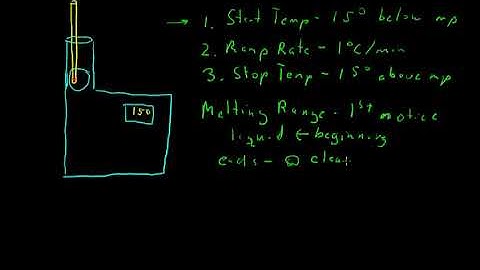 → 1. Start Temp - 15° below mp
2. Ramp Rate - 1°C/min
3. Stop Temp - 15° above mp
150
Melting Range - 1st notice
liquid ← beginning
ends - clear